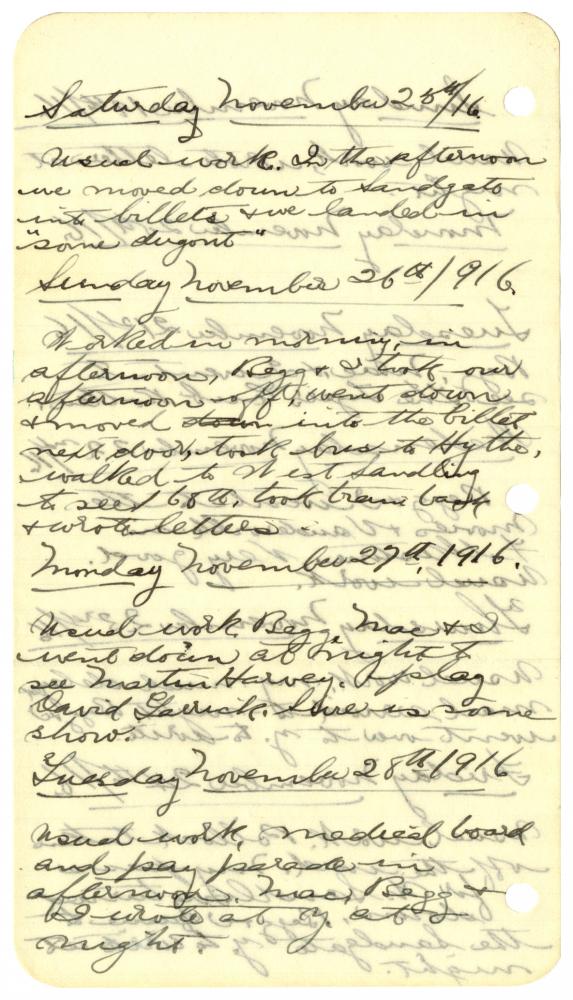 Saturday November 25th/16.
Usual work. In the afternoon
we moved down to Sandgate
into billets & we landed in
"some dugout"
Sunday November 26th/1916.
Worked in morning, in
afternoon, Begg & I took our
afternoon off, went down
& moved down into the billet
next door, took bus to Hythe,
walked to West Sandling
to see 68th, took tram back
& wrote letters.
Monday November 27th, 1916.
Usual work, Begg, Mac & I
went down at night to
see Martin Harvey. play
David Garrick. Sure is some
show.
Tuesday November 28th/1916
Usual work, medical board
and pay parade in
afternoon. Mac, Begg &
I wrote at Y. at
night.